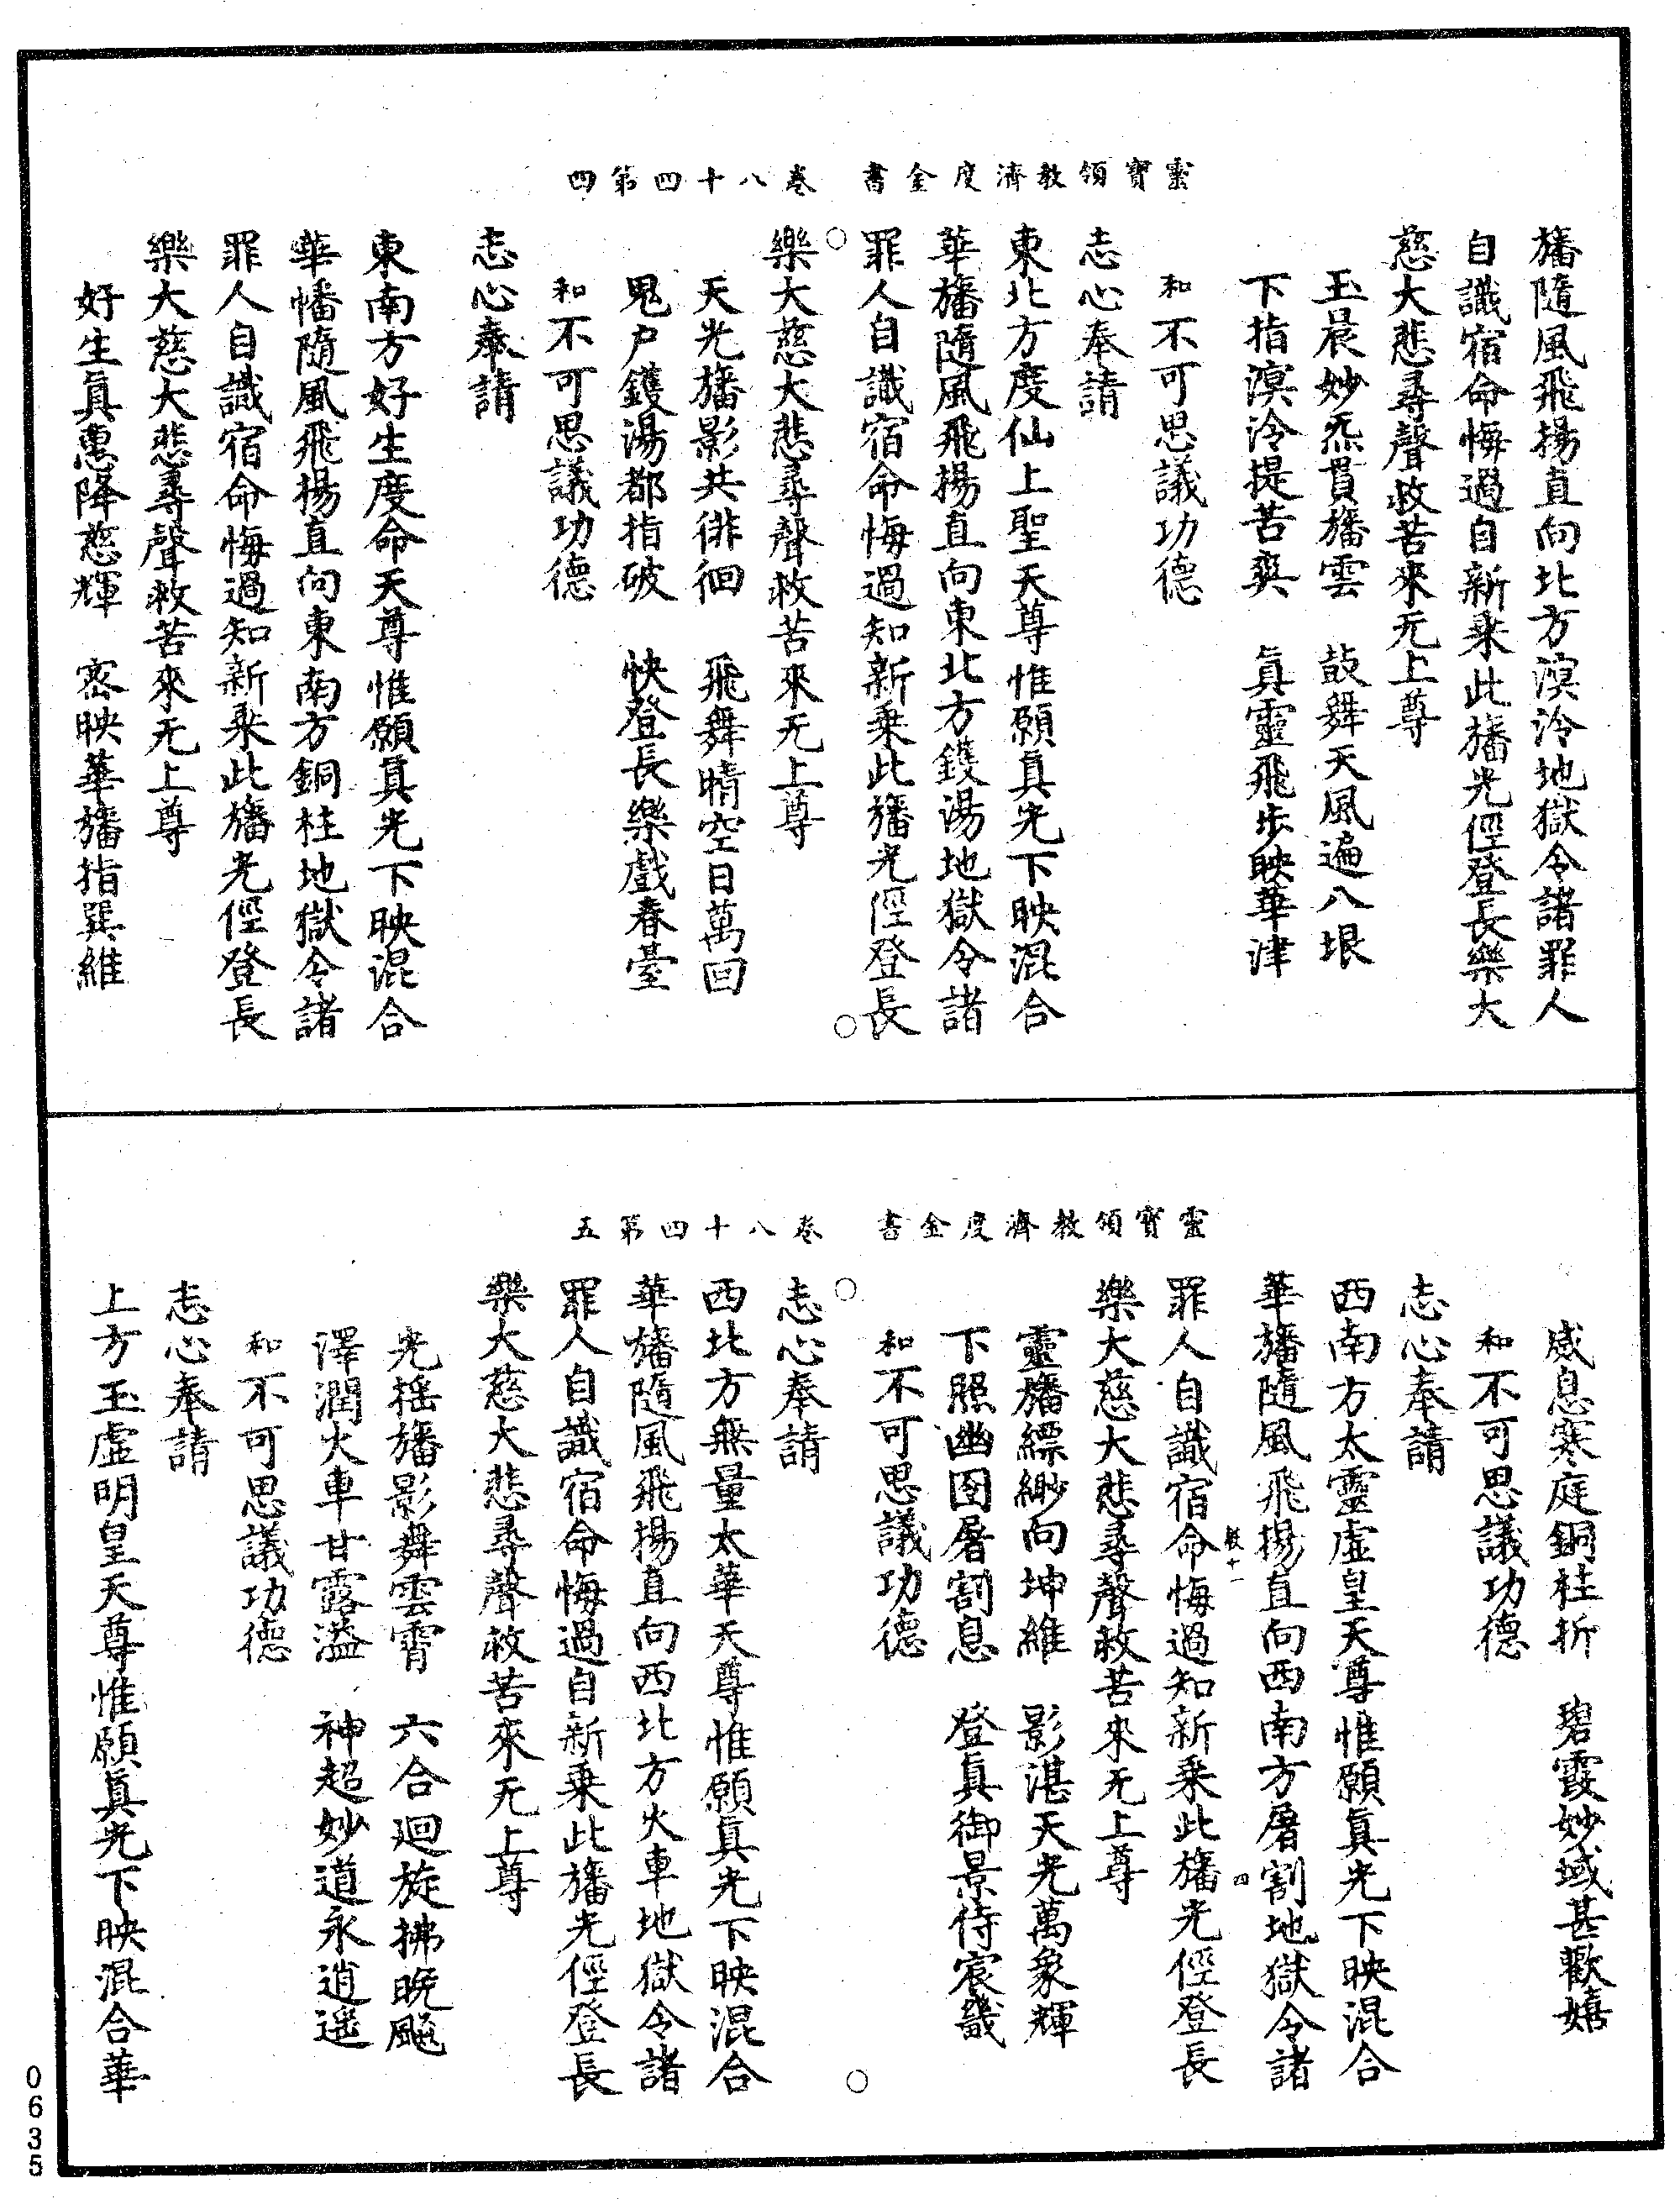 靈寶領教濟度金書　卷八十四第四
旛隨風飛揚直向北方溟泠地獄令諸罪人
自識宿命悔過自新乘此旛光徑登長樂大
慈大悲尋聲救苦來无上尊
玉晨妙炁貫旛雲　鼓舞天風遍八垠
下指溟泠提苦爽　眞靈飛步映華津
和不可思議功德
志心奉請
東北方度仙上聖天尊惟願眞光下映混合
華旛隨風飛揚直向東北方鑊湯地獄令諸
罪人自識宿命悔過知新乘此旛光徑登長
樂大慈大悲尋聲救苦來无上尊
天光旛影共徘徊　飛舞晴空日萬回
鬼户鑊湯都指破　快登長樂戲春臺
和不可思議功德
志心奉請
東南方好生度命天尊惟願眞光下映混合
華幡隨風飛揚直向東南方銅柱地獄令諸
罪人自識宿命悔過知新乘此旛光徑登長
樂大慈大悲尋聲救苦來无上尊
好生眞惠降慈輝　密映華旛指巽維
靈寶領教濟度金書　卷八十四第五
威息寒庭銅柱折　碧霞妙域甚歡嬉
和不可思議功德
志心奉請
西南方太靈虛皇天尊惟願眞光下映混合
華旛隨風飛揚直向西南方屠割地獄令諸
罪人自識宿命悔過知新乘此旛光徑登長
樂大慈大悲尋聲救苦來无上尊
靈旛縹緲向坤維　影湛天光萬象輝
下照幽圄屠割息　登眞御景侍宸畿
和不可思議功德
志心奉請
西北方無量太華天尊惟願眞光下映混合
華旛隨風飛揚直向西北方火車地獄令諸
罪人自識宿命悔過自新乘此旛光徑登長
樂大慈大悲尋聲救苦來无上尊
光搖旛影舞雲霄　六合迴旋拂晚飈
澤潤火車甘露溢　神超妙道永逍遥
和不可思議功德
志心奉請
上方玉虛明皇天尊惟願眞光下映混合華
0635